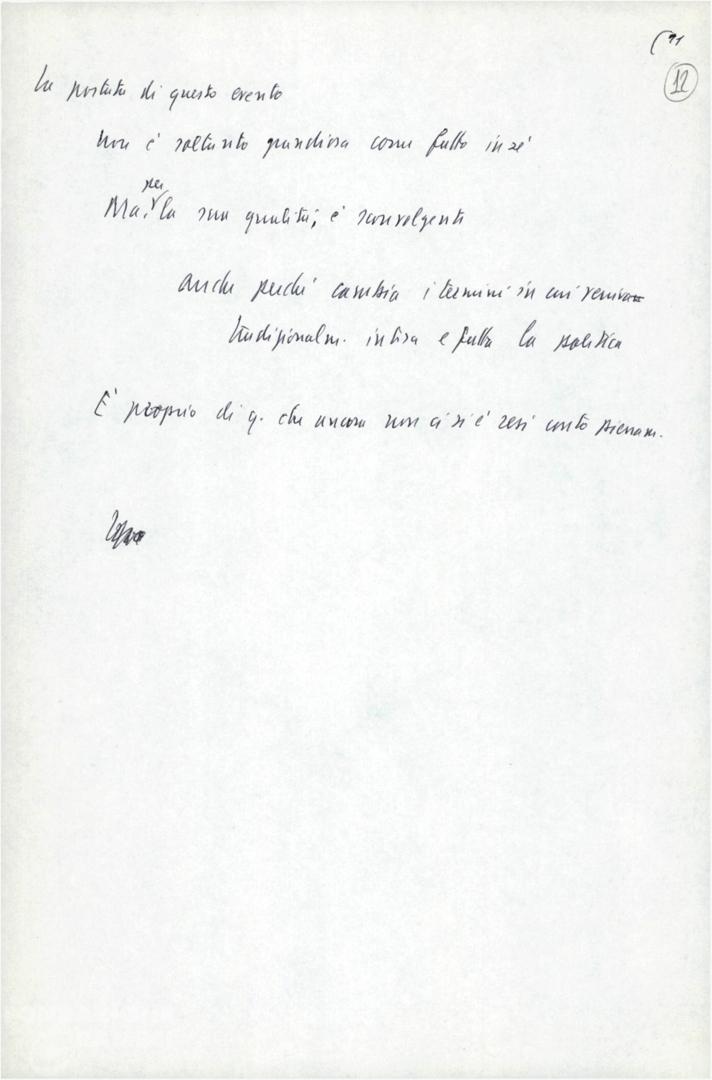 12
La portata di questo evento
non è soltanto grandiosa come fatto in sé
Ma, per la sua qualità, è sconvolgente
anche perché cambia i termini in cui veniva
tradizionalm. intesa e fatta la politica
È proprio di q. che ancora non ci si è resi conto pienam.